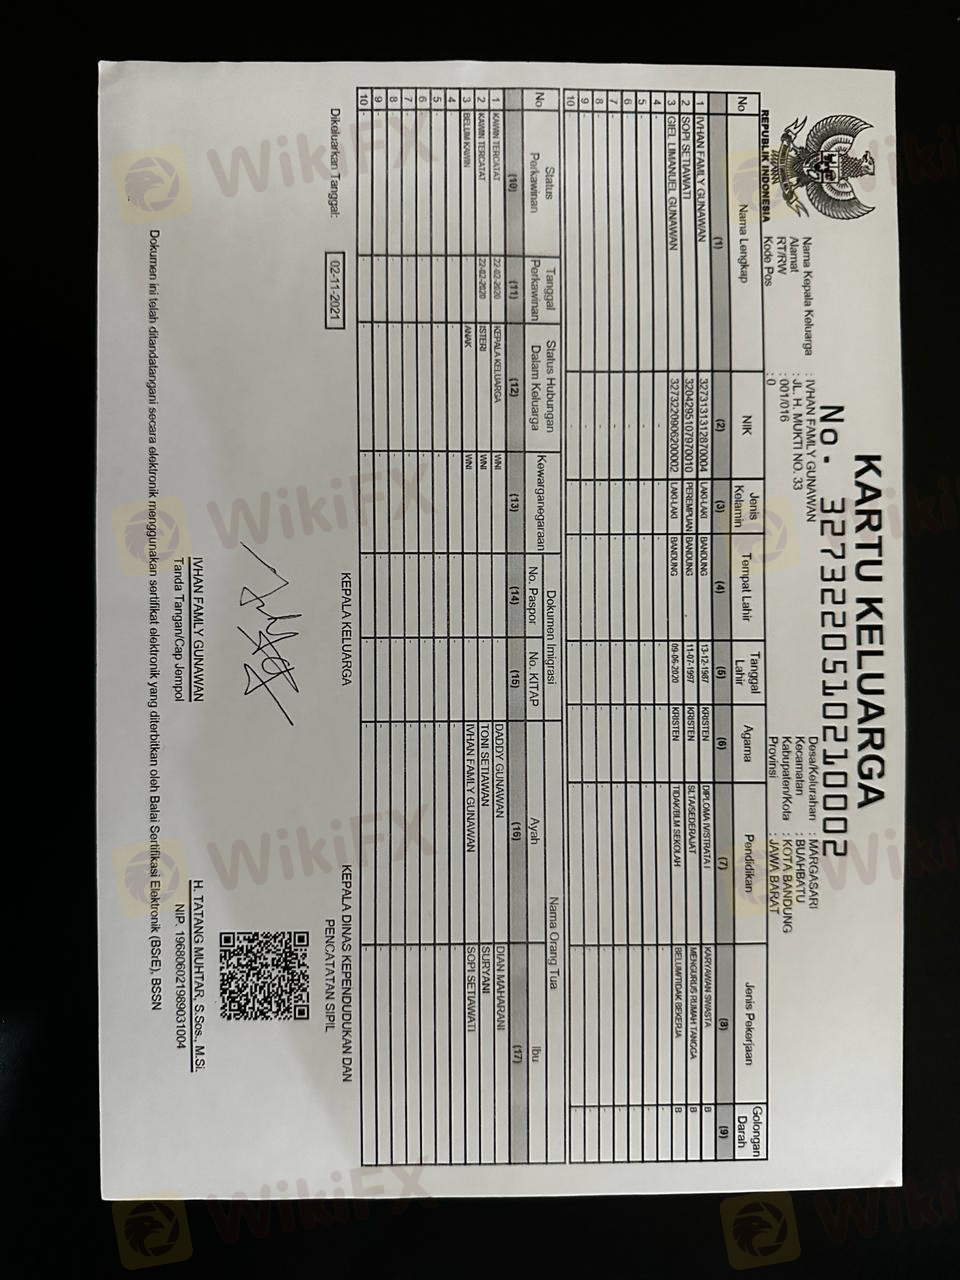 KARTU KELUARGA
No. 3273220510210002
REPUBLIK INDONESIA
Nama Kepala Keluarga : IVHAN FAMLY GUNAWAN
Alamat : JL. H. MUKTI NO. 33
RT/RW : 001/016
Kode Pos : 0
Desa/Kelurahan : MARGASARI
Kecamatan : BUAHBATU
Kabupaten/Kota : KOTA BANDUNG
Provinsi : JAWA BARAT
No Nama Lengkap NIK Jenis Kelamin Tempat Lahir Tanggal Lahir Agama Pendidikan Jenis Pekerjaan Golongan Darah
(1) (2) (3) (4) (5) (6) (7) (8) (9)
1 IVHAN FAMLY GUNAWAN 3273131312870004 LAKI-LAKI BANDUNG 13-12-1987 KRISTEN DIPLOMA IV/STRATA I KARYAWAN SWASTA B
2 SOPI SETIAWATI 3204295107970010 PEREMPUAN BANDUNG 11-07-1997 KRISTEN SLTA/SEDERAJAT MENGURUS RUMAH TANGGA B
3 GIEL LIMANUEL GUNAWAN 3273220906200002 LAKI-LAKI BANDUNG 09-06-2020 KRISTEN TIDAK/BLM SEKOLAH BELUM/TIDAK BEKERJA B
4 - - - - - - - - -
5 - - - - - - - - -
6 - - - - - - - - -
7 - - - - - - - - -
8 - - - - - - - - -
9 - - - - - - - - -
10 - - - - - - - - -
No Status Perkawinan Tanggal Perkawinan Status Hubungan Dalam Keluarga Kewarganegaraan Dokumen Imigrasi Nama Orang Tua
No. Paspor No. KITAP Ayah Ibu
(10) (11) (12) (13) (14) (15) (16) (17)
1 KAWIN TERCATAT 22-02-2020 KEPALA KELUARGA WNI - - DADDY GUNAWAN DIAN MAHARANI
2 KAWIN TERCATAT 22-02-2020 ISTERI WNI - - TONI SETIAWAN SURYANI
3 BELUM KAWIN - ANAK WNI - - IVHAN FAMLY GUNAWAN SOPI SETIAWATI
4 - - - - - - - -
5 - - - - - - - -
6 - - - - - - - -
7 - - - - - - - -
8 - - - - - - - -
9 - - - - - - - -
10 - - - - - - - -
Dikeluarkan Tanggal: 02-11-2021
KEPALA KELUARGA
IVHAN FAMLY GUNAWAN
Tanda Tangan/Cap Jempol
KEPALA DINAS KEPENDUDUKAN DAN
PENCATATAN SIPIL
H. TATANG MUHTAR, S.Sos., M.Si.
NIP. 196806021989031004
Dokumen ini telah ditandatangani secara elektronik menggunakan sertifikat elektronik yang diterbitkan oleh Balai Sertifikasi Elektronik (BSrE), BSSN
WikiFX
WikiFX
WikiFX
WikiFX
WikiFX
WikiFX
WikiFX